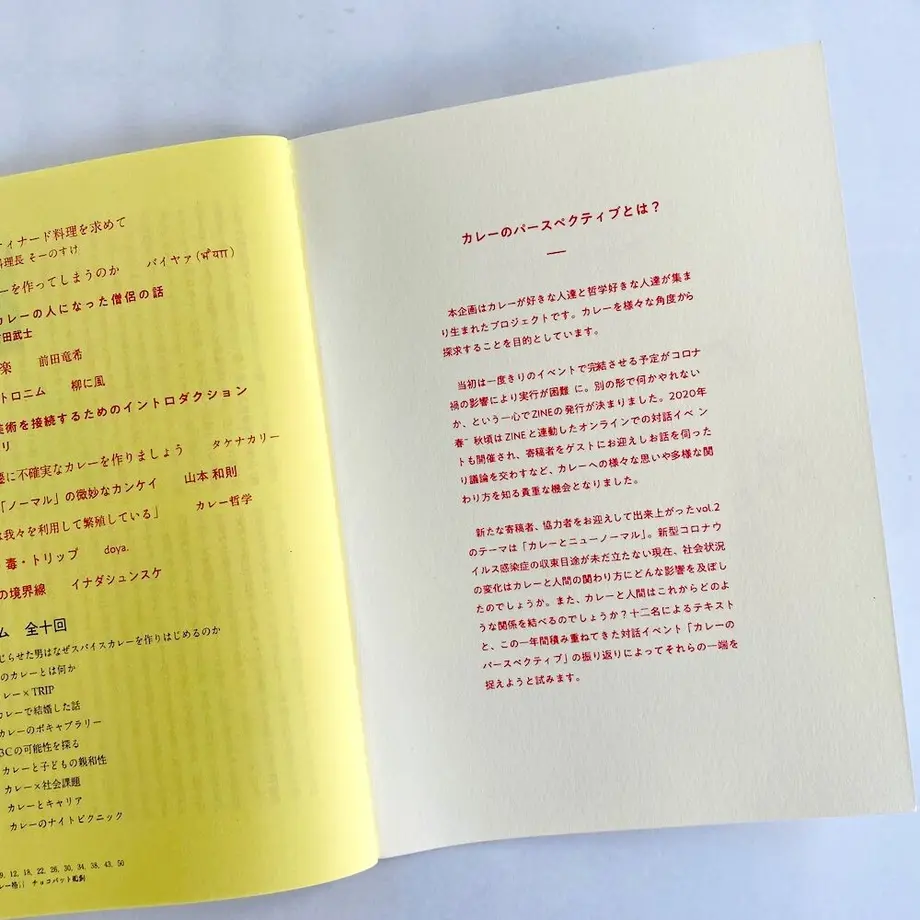 ィナード料理を求めて
料理長 そーのすけ
ーを作ってしまうのか バイヤァ
カレーの人になった僧侶の話
田武士
楽 前田竜希
トロニム 柳に風
美術を接続するためのイントロダクション
リ
に不確実なカレーを作りましょう タケナカリー
「ノーマル」の微妙なカンケイ 山本 和則
は我々を利用して繁殖している」 カレー哲学
毒・トリップ doya.
の境界線 イナダシュンスケ
ム 全十回
じらせた男はなぜスパイスカレーを作りはじめるのか
のカレーとは何か
レー×TRIP
カレーで結婚した話
カレーのボキャブラリー
Cの可能性を探る
カレーと子どもの親和性
カレー×社会課題
カレーとキャリア
カレーのナイトピクニック
9. 12. 18. 22. 26. 30. 34. 38. 43. 50
チョコバット
カレーのパースペクティブとは？
本企画はカレーが好きな人達と哲学好きな人達が集ま
り生まれたプロジェクトです。カレーを様々な角度から
探求することを目的としています。
当初は一度きりのイベントで完結させる予定がコロナ
禍の影響により実行が困難 に。別の形で何かやれない
か、という一心でZINEの発行が決まりました。2020年
春~ 秋頃はZINEと連動したオンラインでの対話イベ ン
トも開催され、寄稿者をゲストにお迎えしお話を伺った
り議論を交わすなど、カレーへの様々な思いや多様な関
わり方を知る貴重な機会となりました。
新たな寄稿者、協力者をお迎えして出来上がったvol.2
のテーマは「カレーとニューノーマル」。新型コロナウ
イルス感染症の収束目途が未だ立たない現在、社会状況
の変化はカレーと人間の関わり方にどんな影響を及ぼし
たのでしょうか。また、カレーと人間はこれからどのよ
うな関係を結べるのでしょうか？十二名によるテキスト
と、この一年間積み重ねてきた対話イベント「カレーの
パースペクティブ」の振り返りによってそれらの一端を
捉えようと試みます。